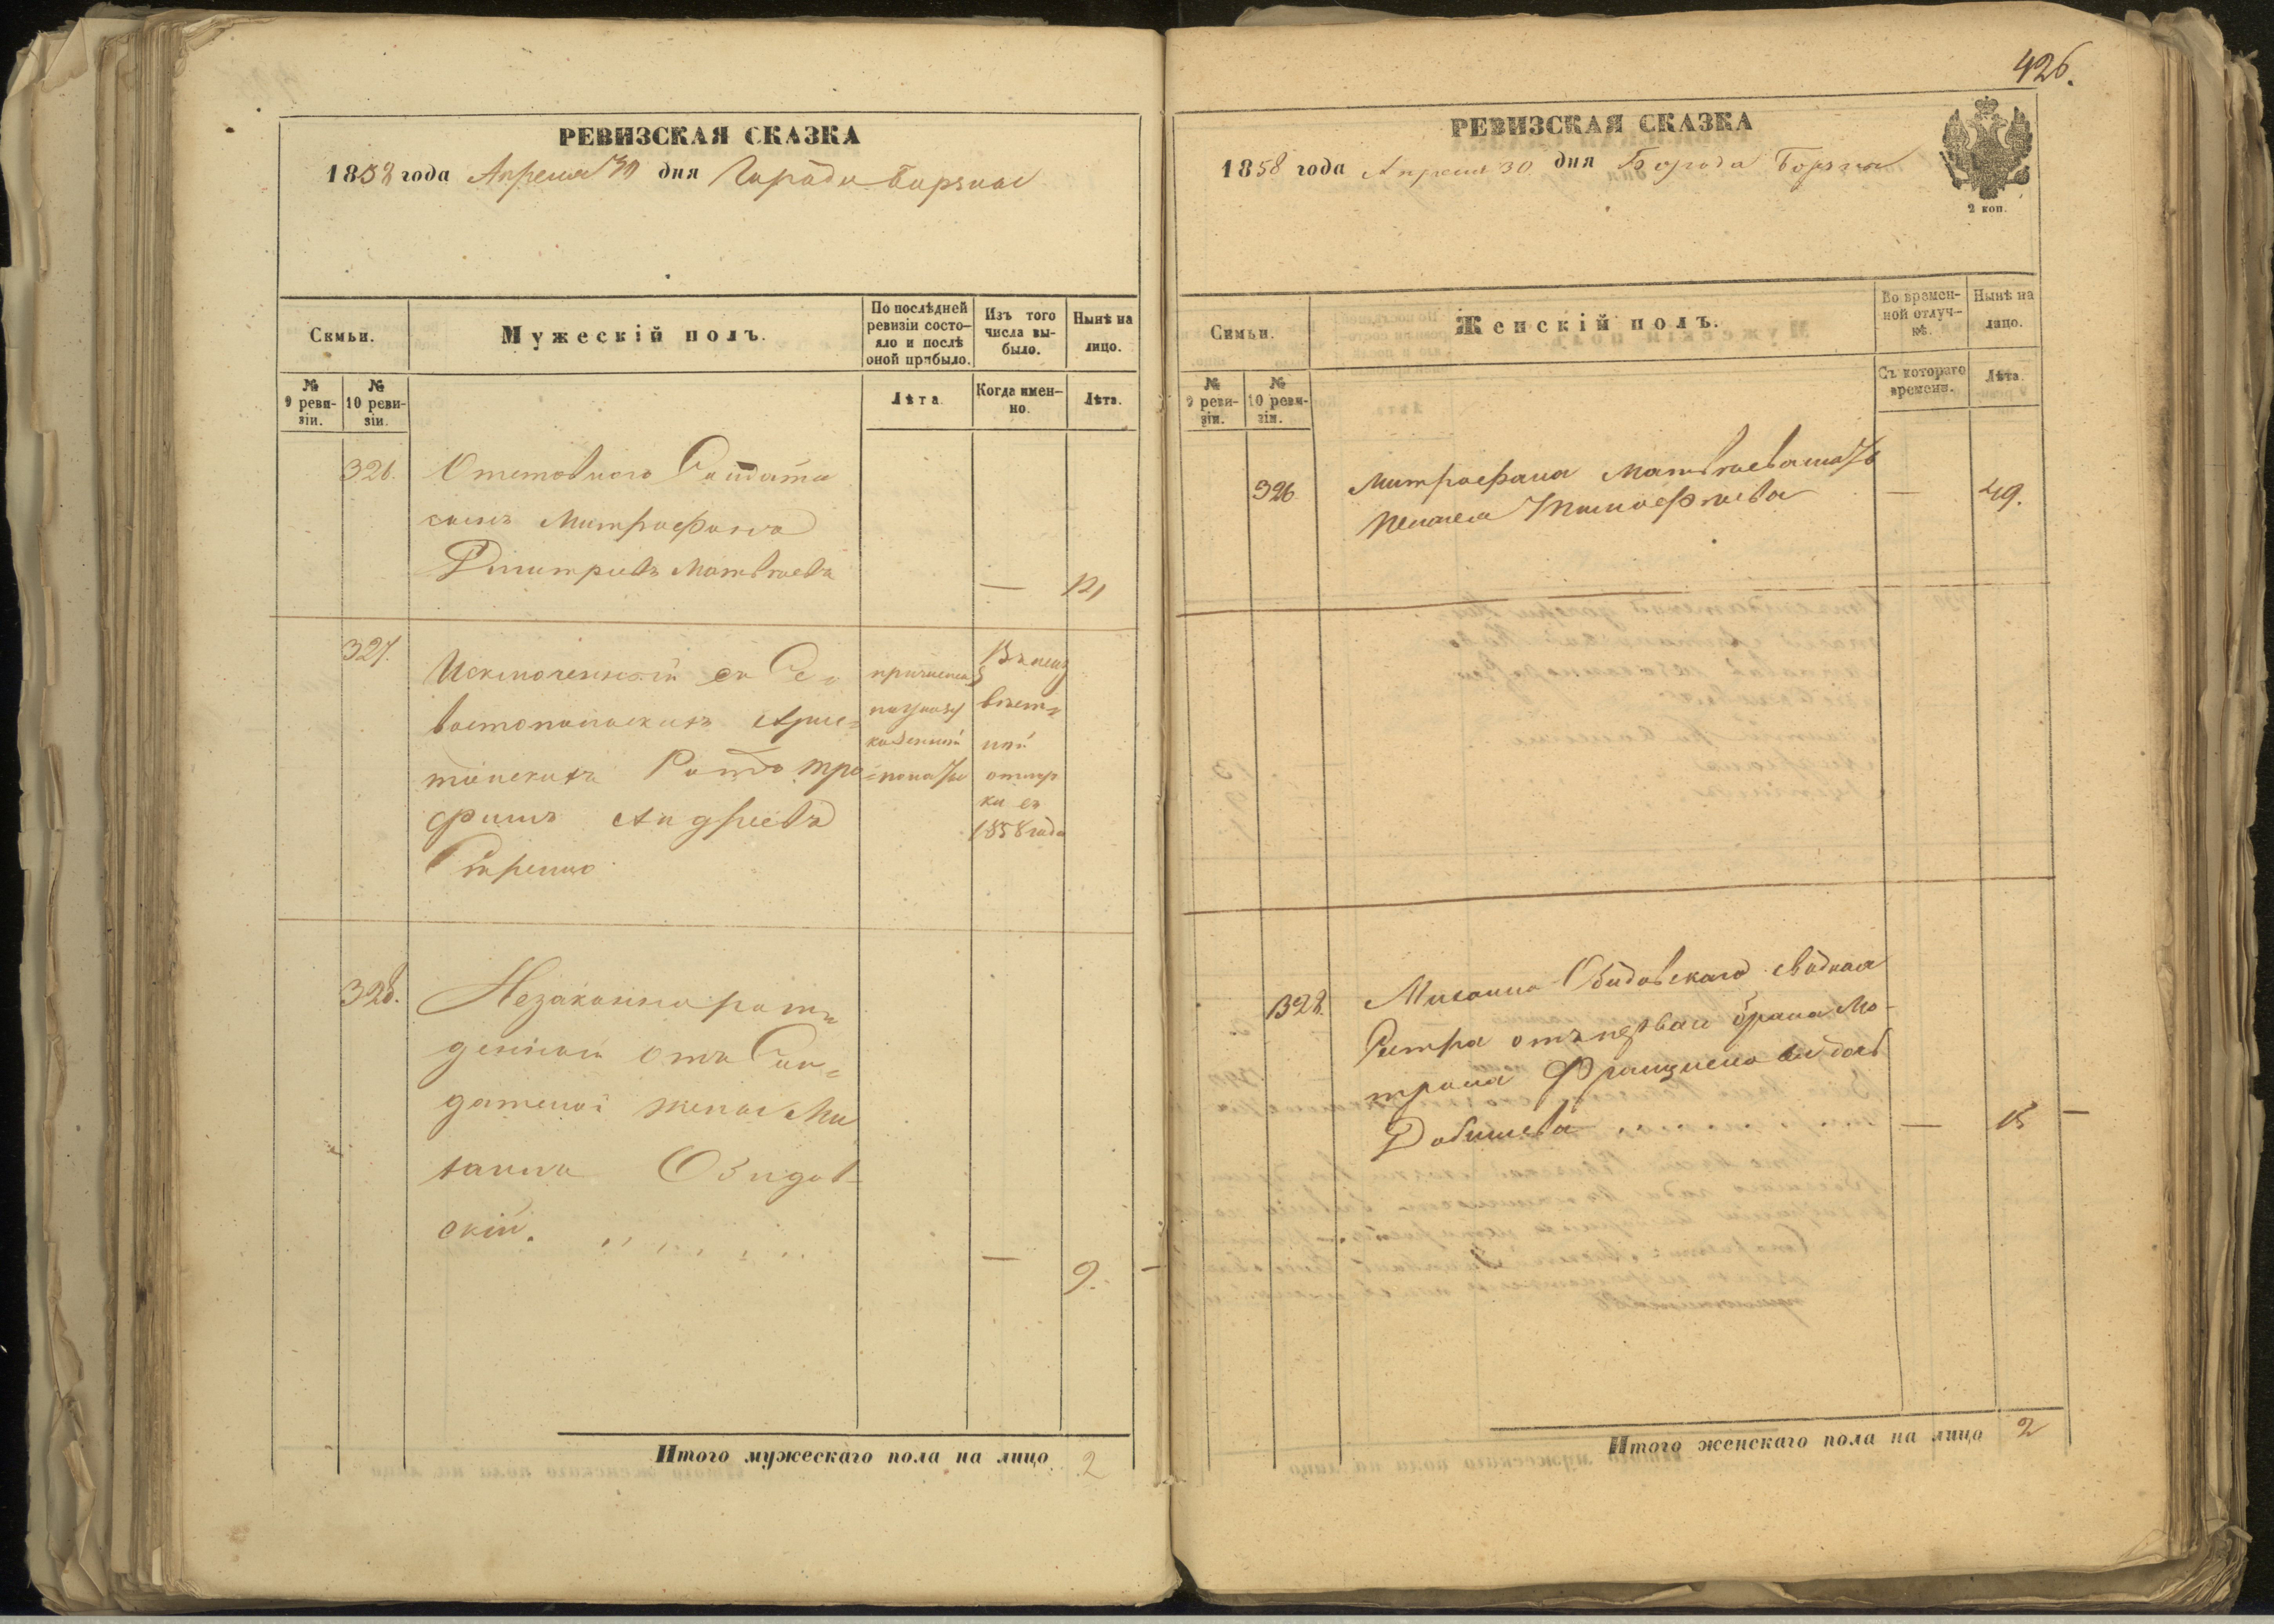 РЕВИЗСКАЯ СКАЗКА
1858 года Апреля 30 дня Города Борзны
Семьи.
Мужескій полъ.
По послѣдней ревизіи состо-
яло и послѣ
оной прибыло.
Изъ того
числа вы-
было.
Нынѣ на
лицо.
№
9 реви-
зіи.
№
10 реви-
зіи.
Лѣта.
Когда имен-
но.
Лѣта.
326.
Отставного Солдата
сынъ Митрофанъ
Дмитріевъ Матвѣевъ
—
327.
Исключенный съ Се-
вастопольскихъ Арес-
танскихъ Ротъ Тро-
фимъ Андреевъ
въ
1858 года
328.
Незаконно рож-
денный отъ Сол-
датской жены Ми-
хаила Обидов-
скій.
— 9.
Итого мужескаго пола на лицо 2
426.
РЕВИЗСКАЯ СКАЗКА
1858 года Апреля 30 дня Города Борзны
2 коп.
Семьи.
Женскій полъ.
Во времен-
ной отлуч-
кѣ.
Нынѣ на
лицо.
№
9 реви-
зіи.
№
10 реви-
зіи.
Съ котораго
времени.
Лѣта.
326
Митрофана Матвѣева мать
Пелагея Тимофеева
— 49.
328.
Михаила Обидовскаго сводная
Сестра отъ первой брака Мо-
трона
— 15 —
Итого женскаго пола на лицо 2